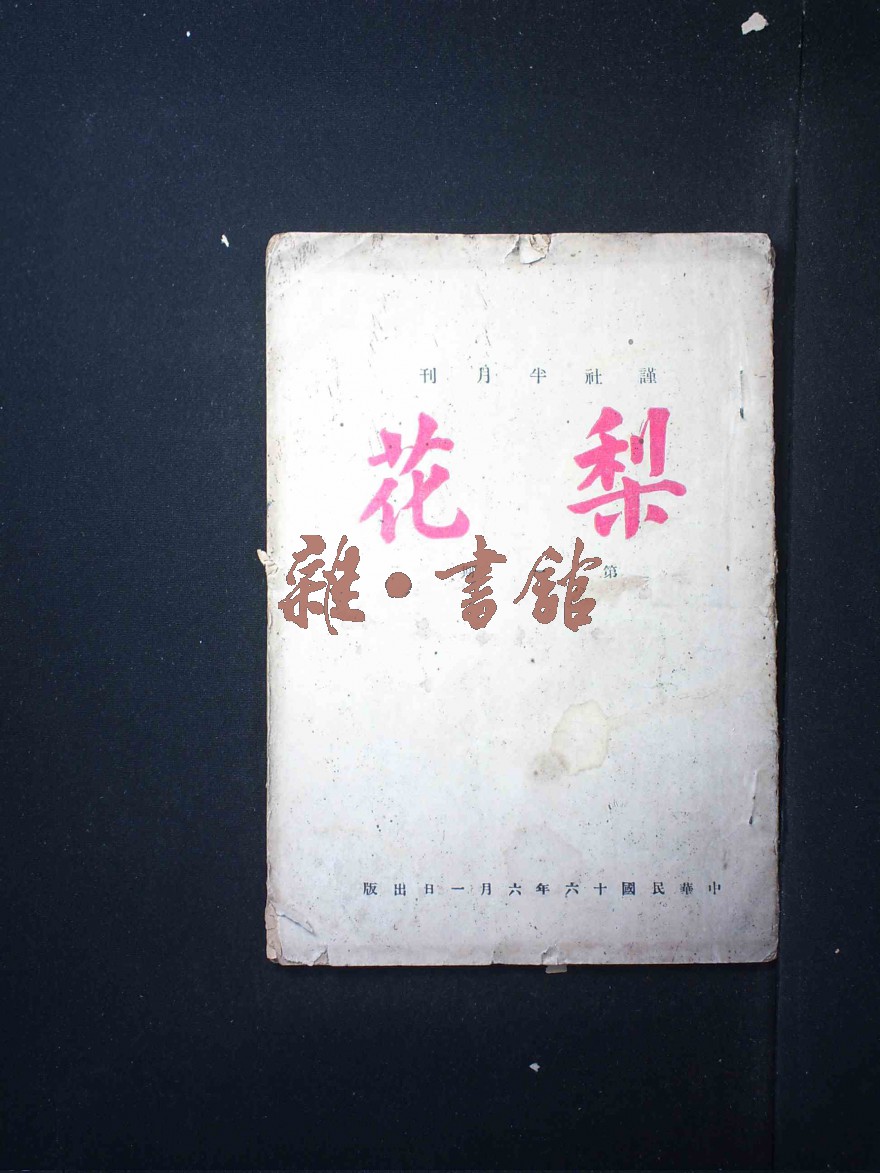 謹社半月刊
梨花
第
雜·書館
中華民國十六年六月一日出版